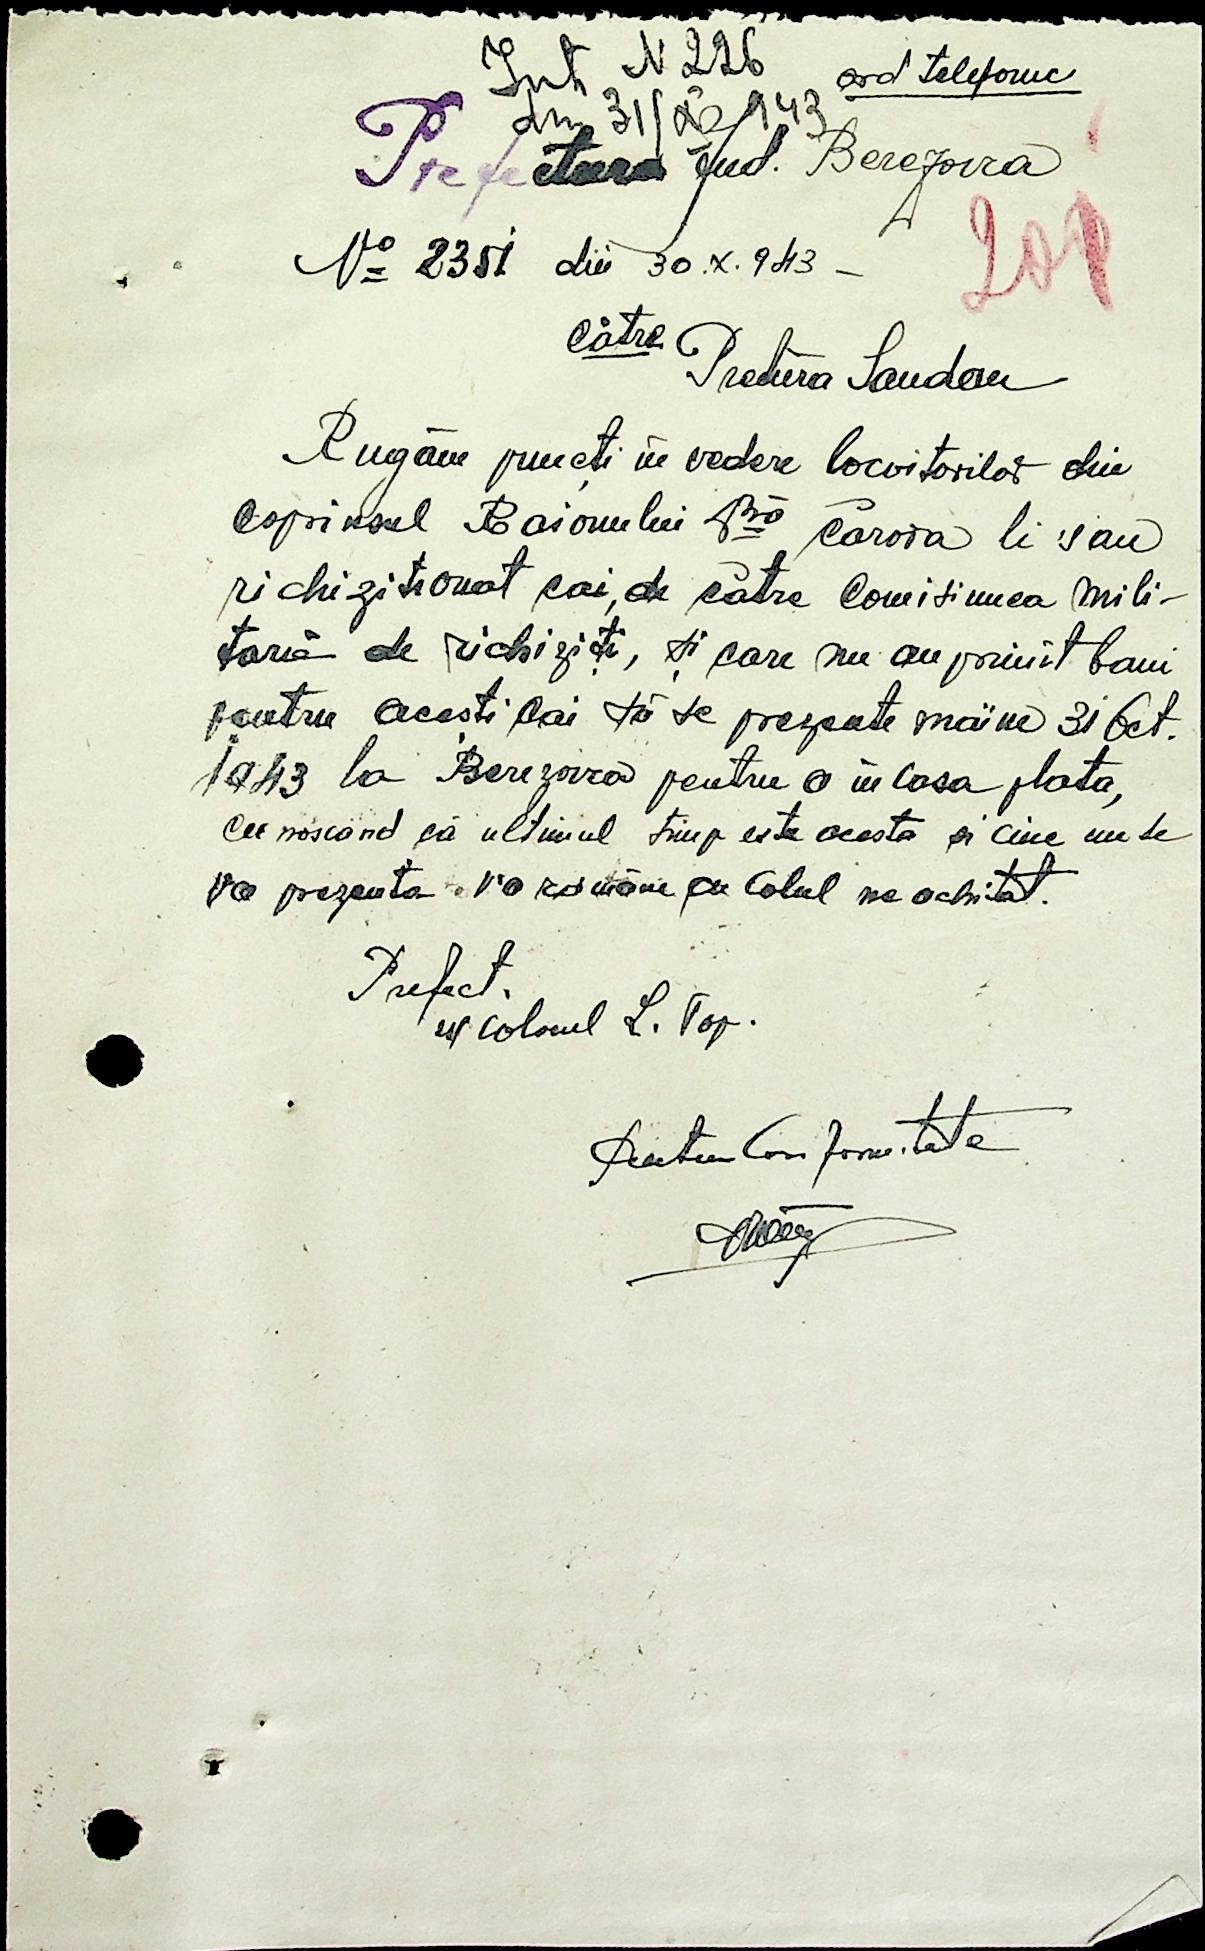 Int N 226
ord telefonic
din 31/X 943
Prefectura Jud. Berezovca
201
No 2351 din 30.X.943 –
Către
Pretura Landau
Rugăm puneți în vedere locuitorilor din
coprinsul Raionului Dvs cărora li sau
richiziționat cai, de către Comisiunea mili-
tară de richiziți, și care nu au primit bani
pentru acești cai să se prezente mâine 31 Oct.
1943 la Berezovca pentru a încasa plata,
cunoscand că ultimul timp este acesta și cine nu se
va prezenta va rămâne cu calul ne achitat.
Prefect.
ss Colonel L. Pop.
Pentru Conformitate